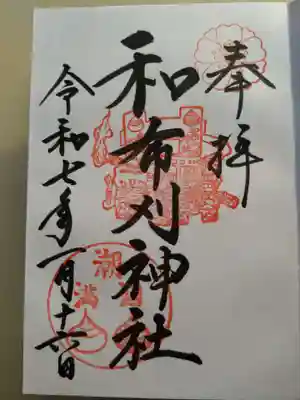 奉拝
和布刈神社
令和七年一月十六日